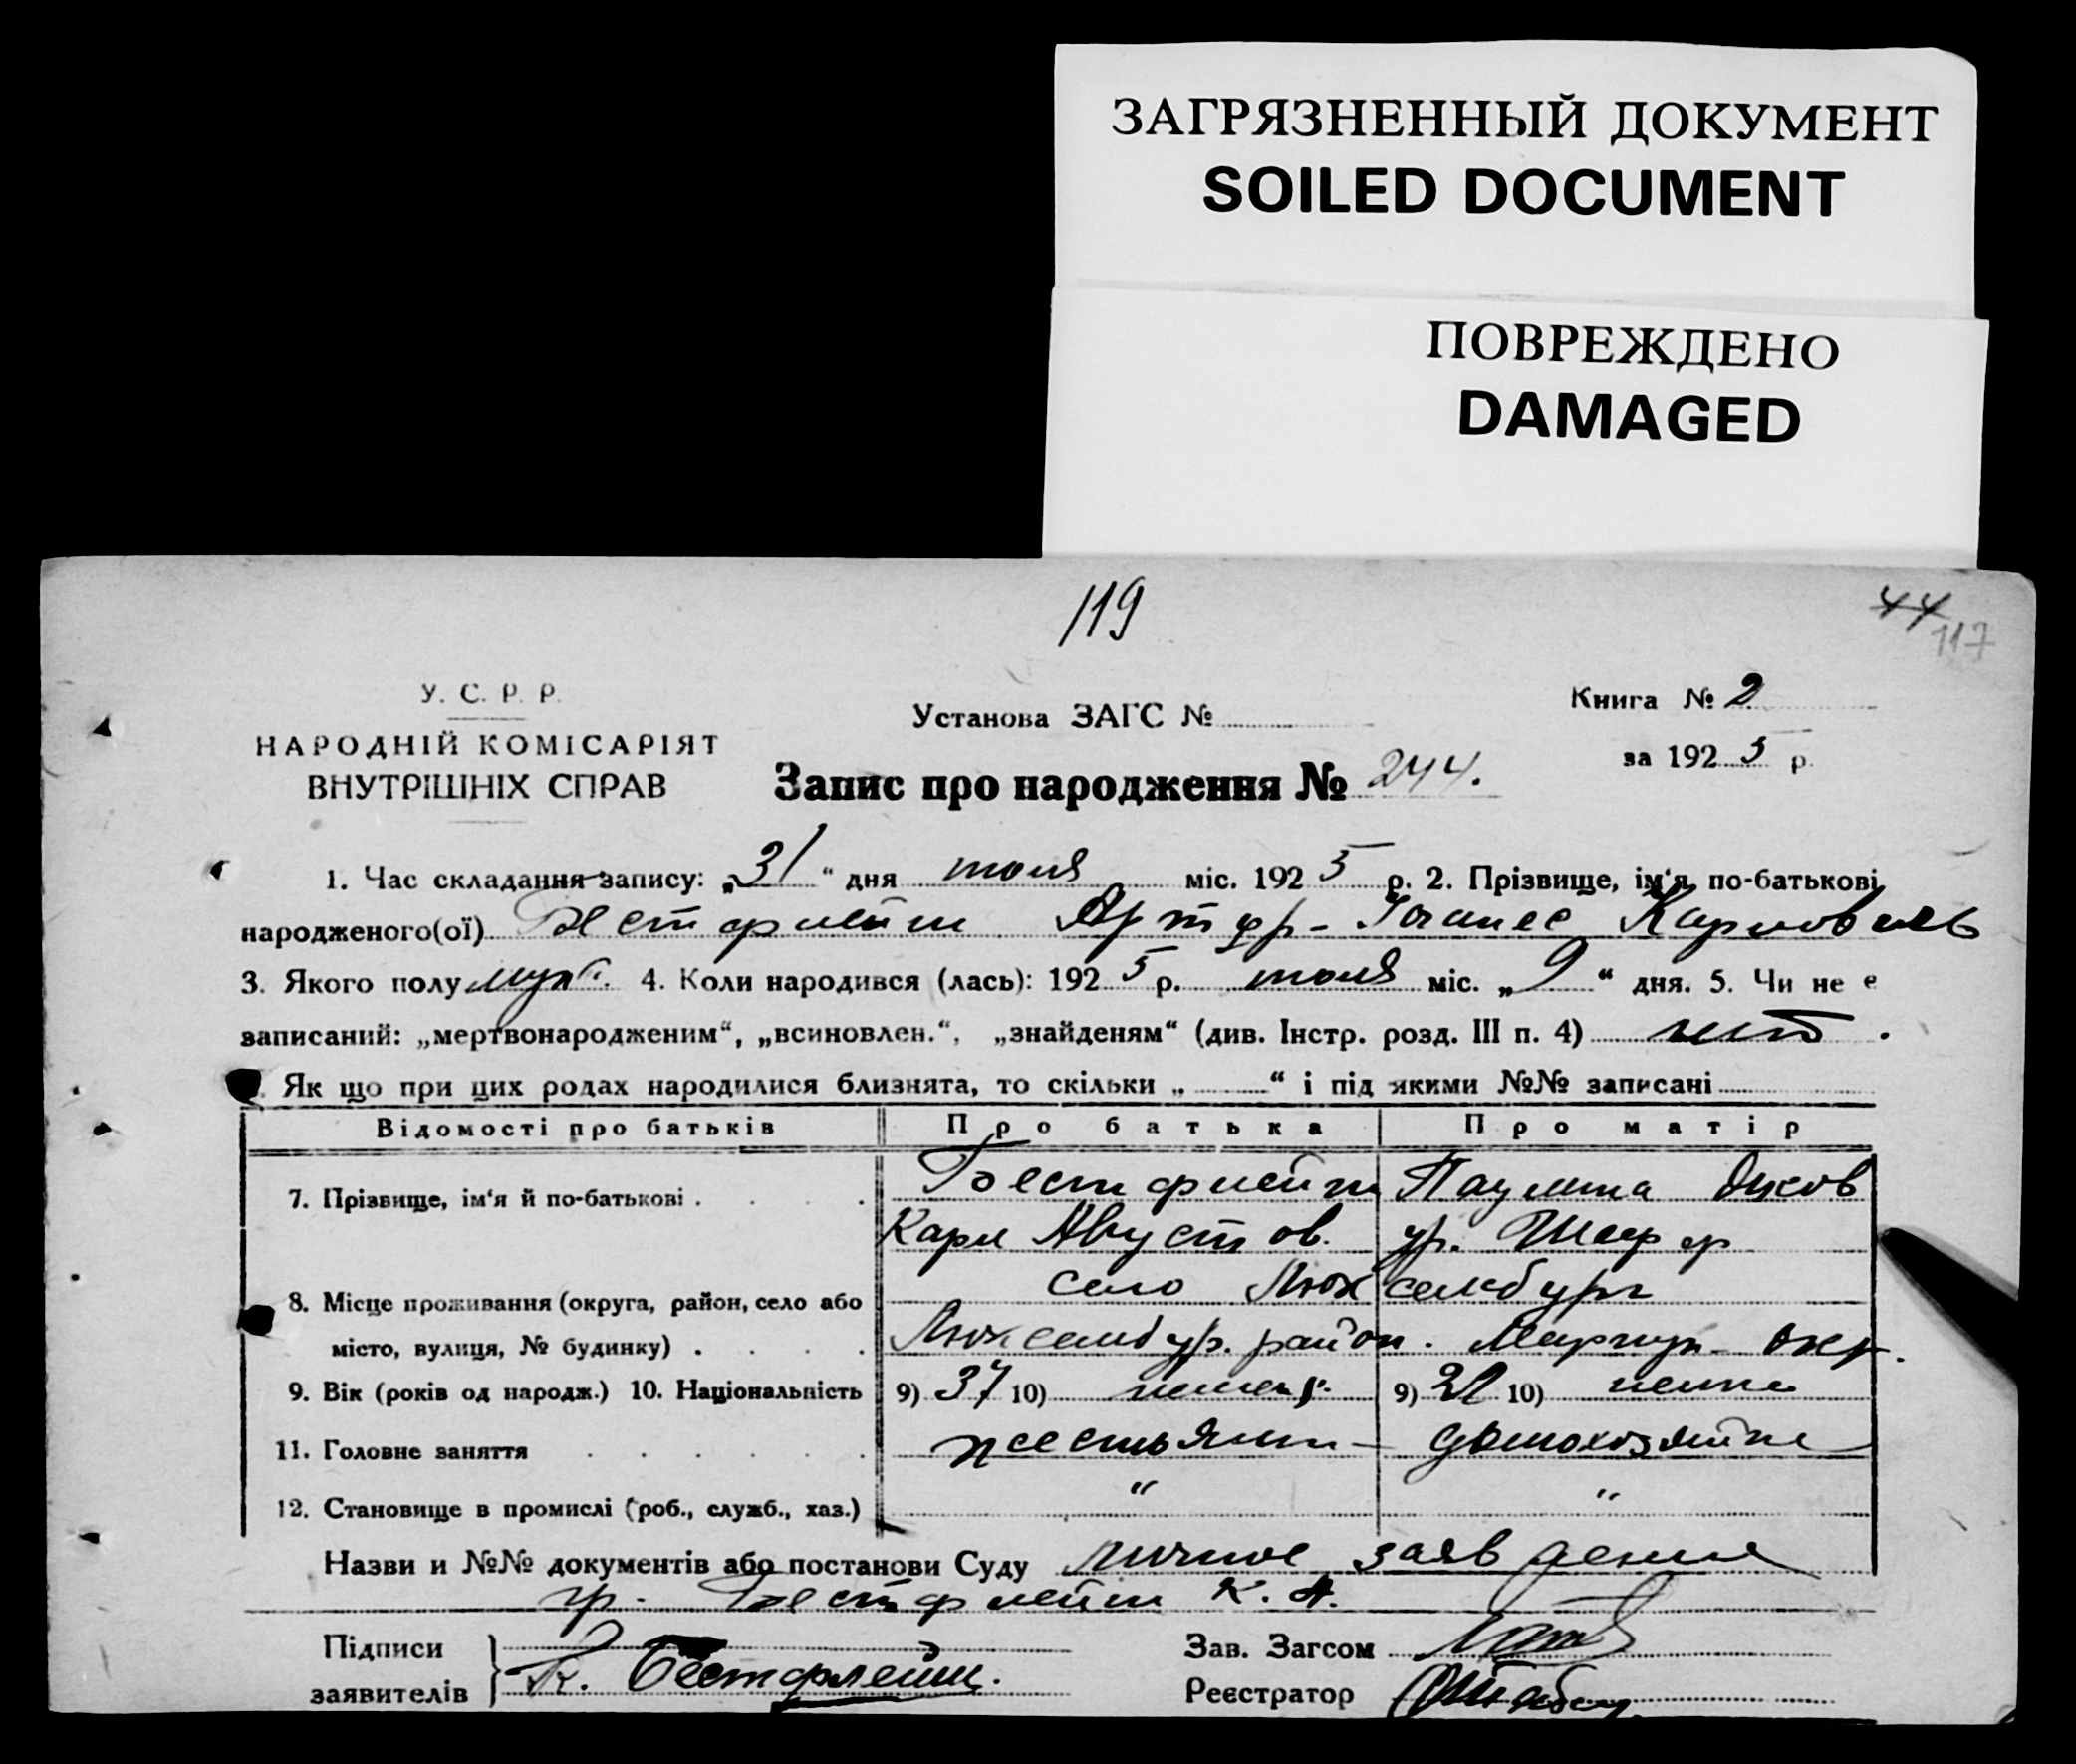 ЗАГРЯЗНЕННЫЙ ДОКУМЕНТ
SOILED DOCUMENT
ПОВРЕЖДЕНО
DAMAGED
119
44
117
У. С. Р. Р.
НАРОДНІЙ КОМІСАРІЯТ
ВНУТРІШНІХ СПРАВ
Установа ЗАГС №
Книга № 2
за 1925 р.
Запис про народження № 244.
1. Час складання запису: „31“ дня июля міс. 1925 р. 2. Прізвище, ім'я, по-батькові
народженого(ої) Вестфлейш Артур-Иоганес Карлович
3. Якого полу муж. 4. Коли народився (лась): 1925 р. июля міс. „9“ дня. 5. Чи не є
записаний: „мертвонародженим“, „всиновлен.“, „знайденям“ (див. Інстр. розд. III п. 4) нет.
Як що при цих родах народилися близнята, то скільки „ “ і під якими №№ записані
Відомості про батьків Про батька Про матір
7. Прізвище, ім'я й по-батькові . Вестфлейш Паулина
Карл Августов. ур. Шеф
8. Місце проживання (округа, район, село або село Люксембург
місто, вулиця, № будинку) . Люксембур. район. Мариуп. окр.
9. Вік (років од народж.) 10. Національність 9) 37 10) немец 9) 10) немка
11. Головне заняття крестьянин домохозяйка
12. Становище в промислі (роб., служб., хаз.) " "
Назви и №№ документів або постанови Суду личное заявление
гр. Вестфлейш К. А.
Підписи
заявителів К. Вестфлейш.
Зав. Загсом
Реєстратор